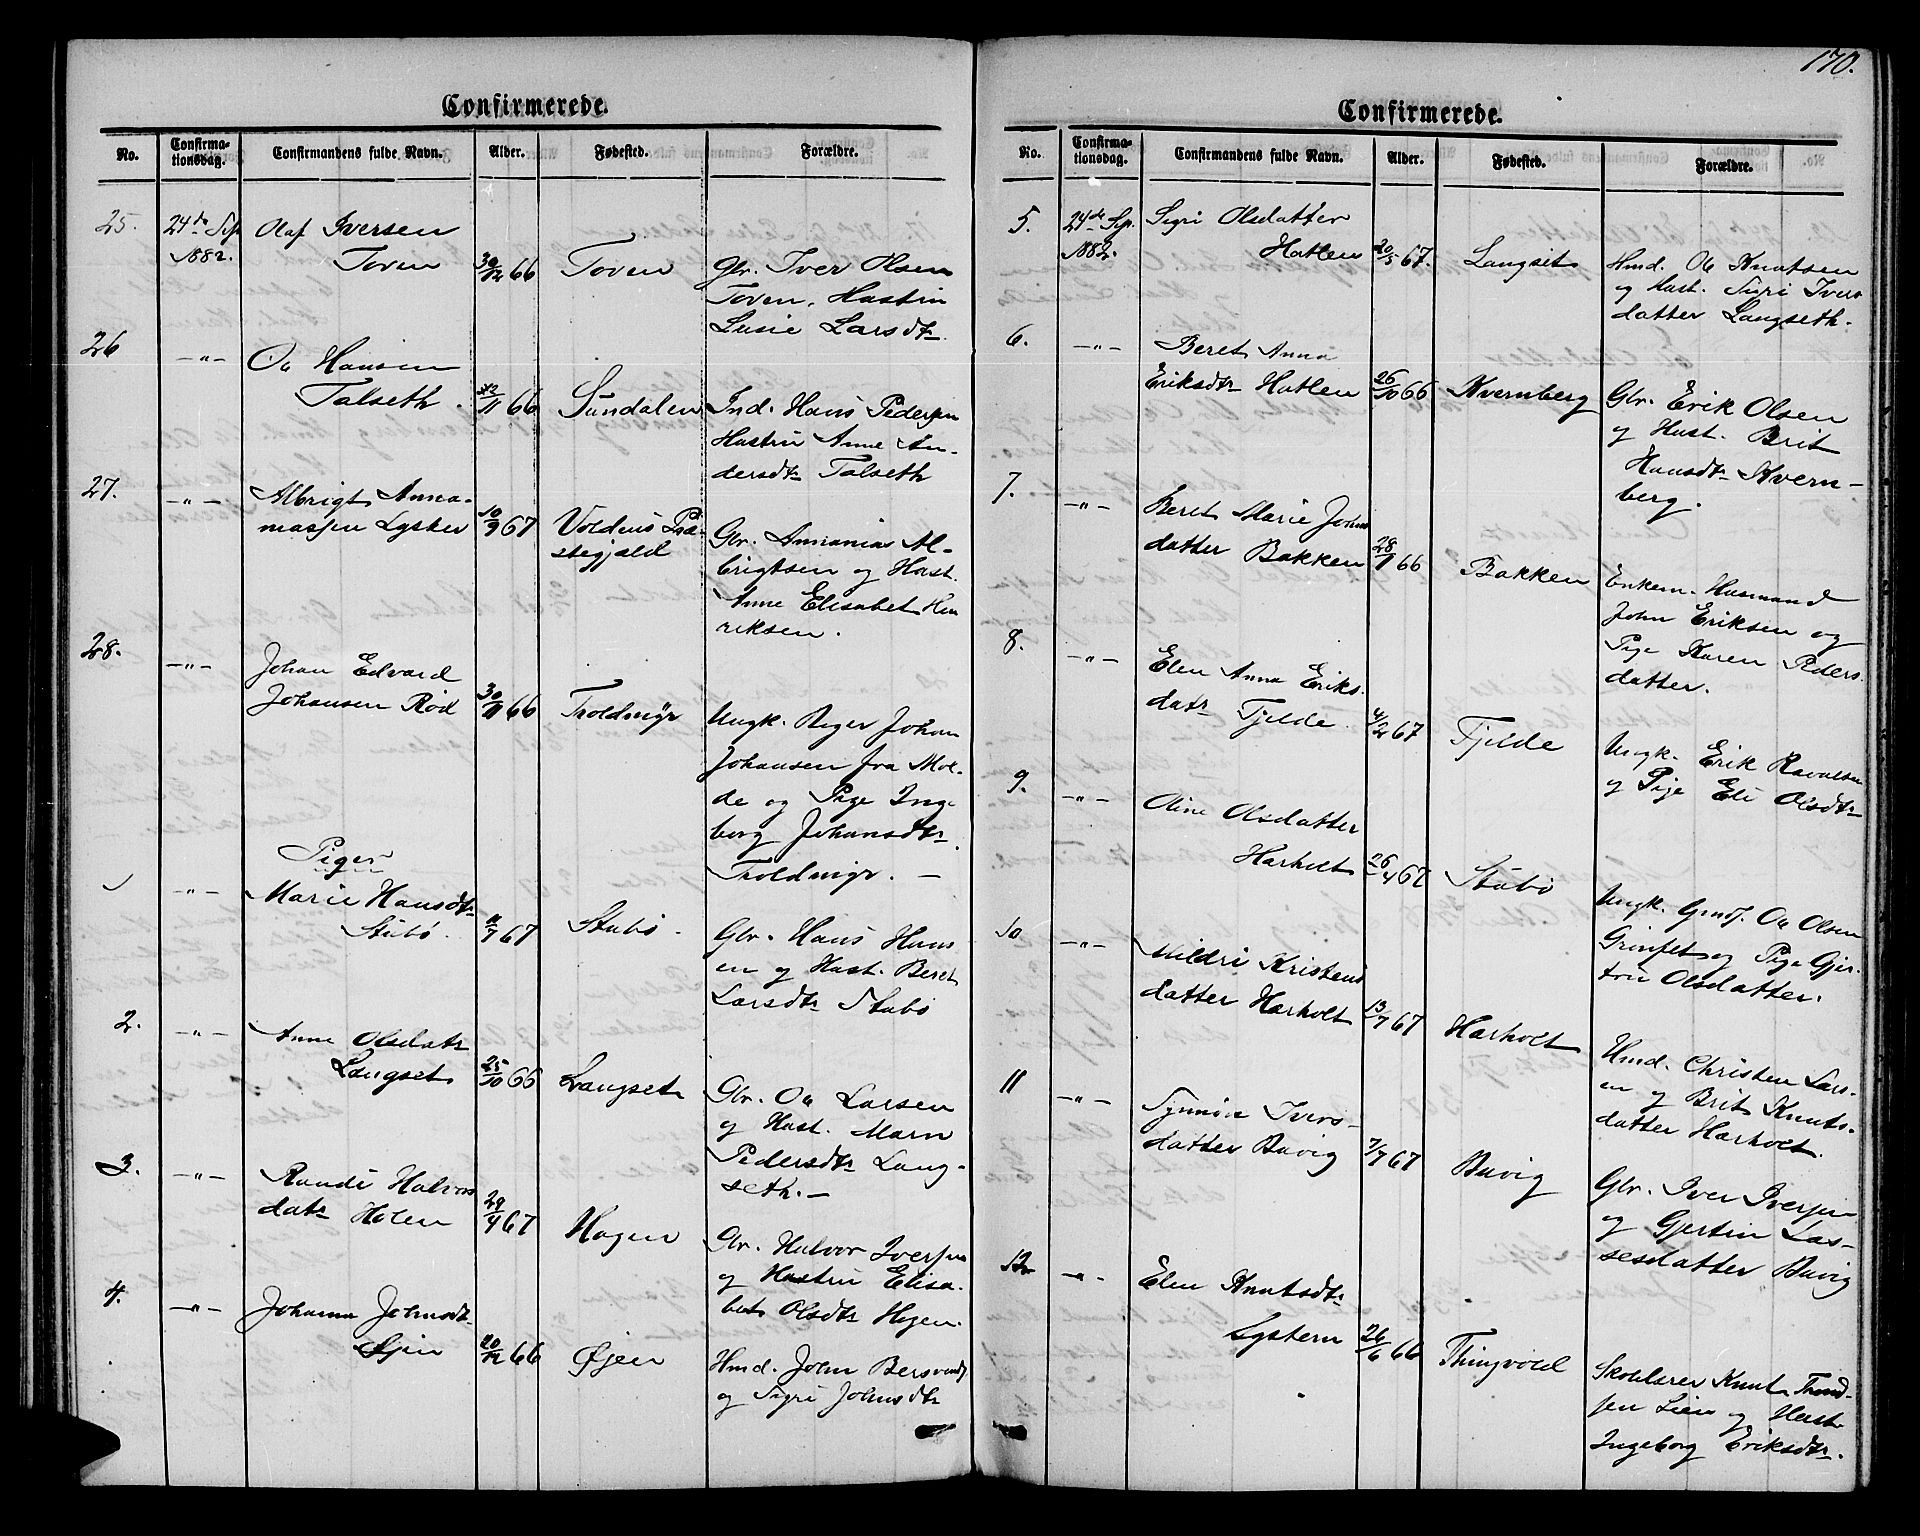 Confirmerede.
No. Confirma-tionsdag. Confirmandens fulde Navn. Alder. Fødested. Forældre.
25. 24de Sep 1882. Olaf Iversen
Toven 30/12 66 Toven Gbr. Iver Olsen
Toven, Hustru
Lusie Larsdtr
26 -"- Ola Hansen
Talseth. /11 66 Sundalen Ind. Hans Pedersen
Hustru Anne An-
dersdtr Talseth
27. -"- Albrigt Anna-
niassen Lysker 10/9 67 Voldens Præ-
stegjæld Gbr. Annanias Al-
brigtsen og Hust.
Anne Elisabet Hen
riksen.
28. -"- Johan Edvard
Johansen Rød 30/11 66 Troldmyr Ungk. Johan
Johansen fra Mol-
de og Pige Inge-
borg Johansdtr
Troldmyr. -
Piger
-"- Marie Hansdtr
Stubø. 11/7 67 Stubø. Gbr. Hans Hans
en og Hust. Beret
Larsdtr Stubø
2. -"- Anne Olsdatr
Langset 25/10 66 Langset Gbr. Ola Larsen
og Hust. Marn
Pedersdtr Lang-
seth. -
3. -"- Randi Halvors
datr Holen 29/4 67 Hagen Gbr. Halvor Iversen
og Hustru Elisa-
bet Olsdtr Hagen.
4. -"- Johanna Johnsdtr
Øjen 20/12 66 Øjen Hmd. John
og Sigri Johnsdtr
170.
Confirmerede.
No. Confirma-tionsdag. Confirmandens fulde Navn. Alder. Fødested. Forældre.
5. 24de Sep. 1882. Sigri Olsdatter
Hatlen 20/5 67. Langset Hmd. Ola Knutsen
og Hust. Sigri Ivers
datter Langseth.
6. -"- Beret Anna
Eriksdtr Hatlen 26/10 66 Kvernberg Gbr. Erik Olsen
og Hust. Brit
Hansdtr Kvern-
berg.
7. -"- Beret Marie Johns
datter Bakken 28/11 66 Bakken Enkem. Husmand
John Eriksen og
Pige Karen Peders
datter.
8. -"- Elen Anna Eriks
datr Fjelde 4/2 67 Fjelde Ungk. Erik
og Pige Eli Olsdtr
9. -"- Oline Olsdatter
Harholt 26/4 67 Stubø Ungk. Ola Olsen
Grinset og Pige Gjer-
tru Olsdatter.
10 -"- Mildri Kristens
datter Harholt 13/7 67 Harholt Hmd. Christen Lars-
en og Brit Knuts-
datter Harholt.
11 -"- Synnøve Ivers-
datter Buvig 7/7 67 Buvig Gbr. Iver Iversen
og Gjertin Las-
sesdatter Buvig
12 -"- Elen Knutsdtr
26/6 66 Thingvold Skolelærer Knut Trond-
sen Lien og Hust.
Ingeborg Eriksdtr.